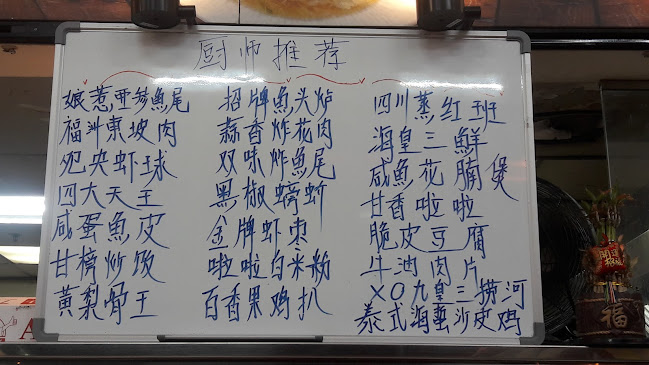 厨师推荐
娘惹亚参魚尾
福州東坡肉
鸳央虾球
四大天王
咸蛋魚皮
甘榜炒饭
黃梨骨王
招牌魚头炉
蒜香炸花肉
双味炸魚尾
黑椒螃蚧
金牌虾枣
啦啦白米粉
百香果鸡扒
四川蒸红班
海皇三鮮
咸魚花腩煲
甘香啦啦
脆皮豆腐
牛油肉片
XO九皇三捞河
泰式海蜇沙皮鸡
福